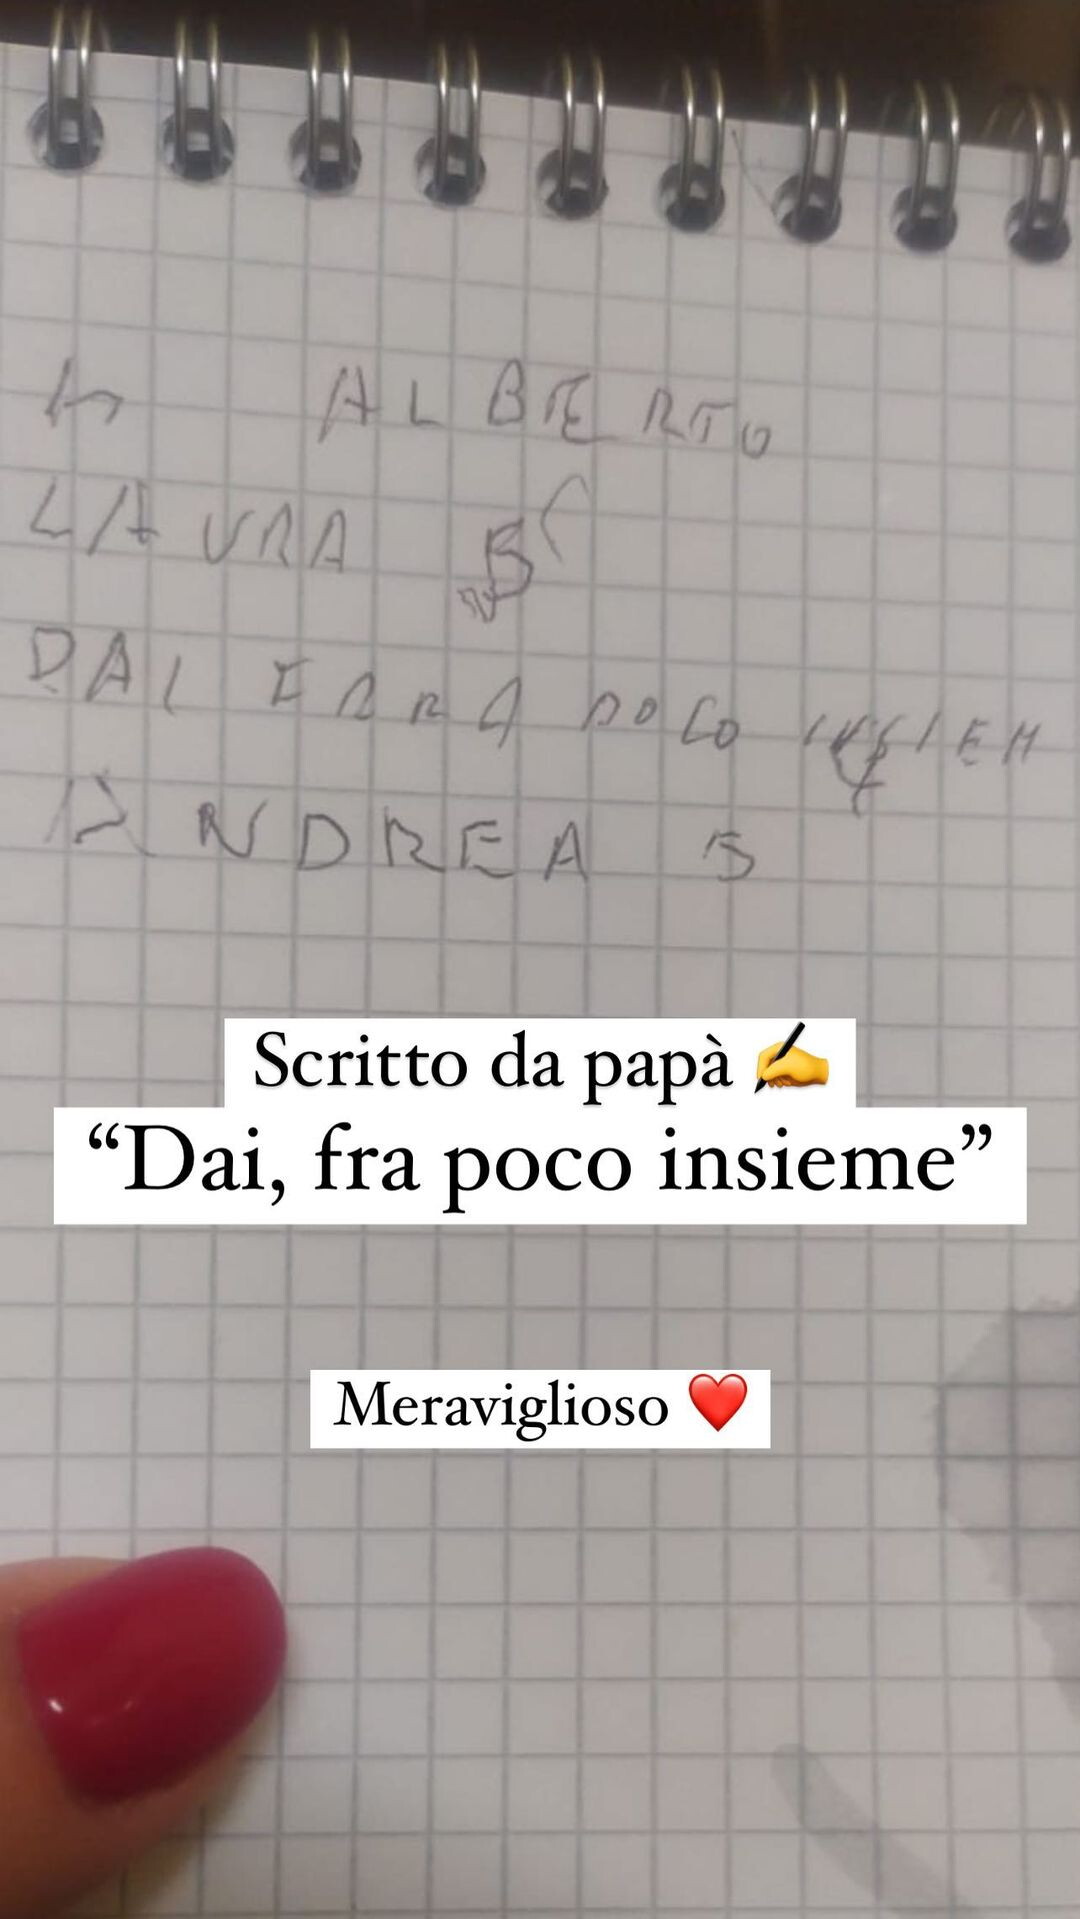 ALBERTO
LAURA B
DAI FRA POCO INSIEM
ANDREA
Scritto da papà ✍️
“Dai, fra poco insieme”
Meraviglioso ❤️